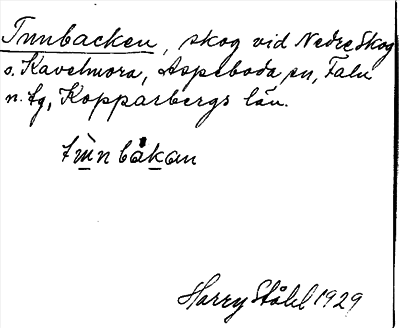 Tunbacken, skog vid Nedre Skog
o. Kavelmora, Aspeboda sn, Falu
n. tg, Kopparbergs län.
båkan
Harry Ståhl 1929